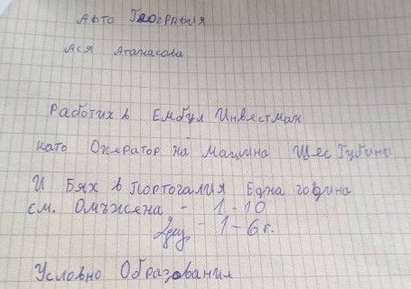 Авто География
Ася Атанасова
Работих в Ембул Инвестман
като Оператор на машина Шес Губино
И Бях в Портогалия Една година
см. Омъжена - 1-10
2дец - 1-6 г.
Условно Образования